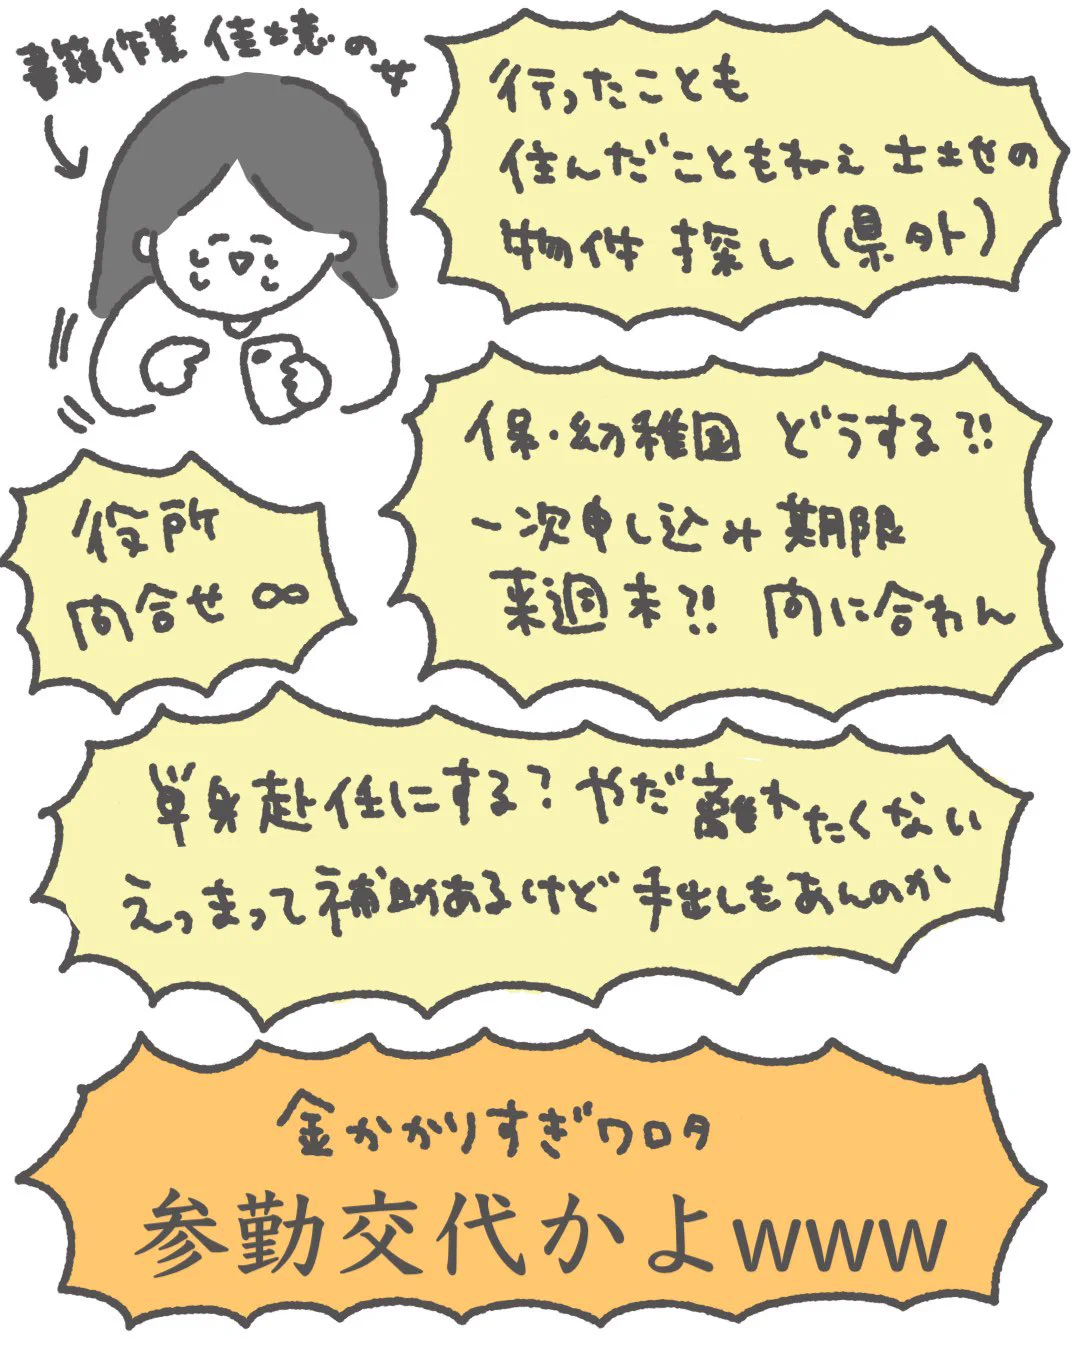 書籍作業 佳境の
女
行ったことも
住んだこともねぇ 土地の
物件 探し(県外)
保・幼稚園 どうする?!
一次申し込み 期限
来週末?! 間に合わん
役所
問合せ ∞
単身赴任にする? やだ 離れたくない
えっまって 補助あるけど 手出しもあんのか
金かかりすぎワロタ
参勤交代かよwww